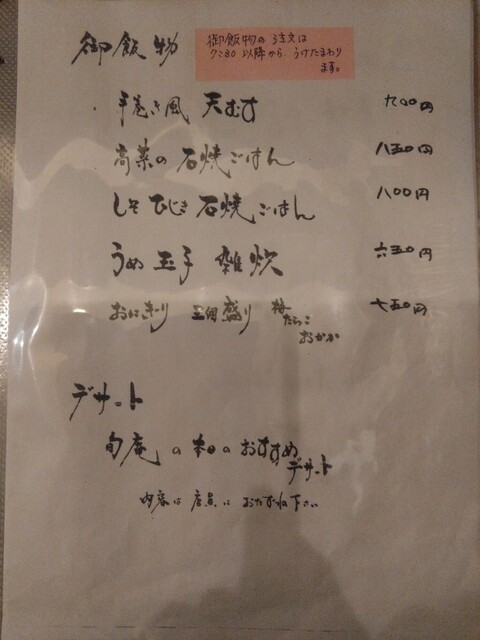 御飯物
御飯物の注文は
7:30以降から、うけたまわり
ます。
手巻き風 天むす 九〇〇円
高菜の石焼ごはん 八五〇円
しそひじき石焼ごはん 八〇〇円
うめ玉子雑炊 六五〇円
おにぎり 三個盛り 梅 七五〇円
たらこ
おかか
デザート
旬庵の本日のおすすめ
デザート
内容は店員におたずね下さい